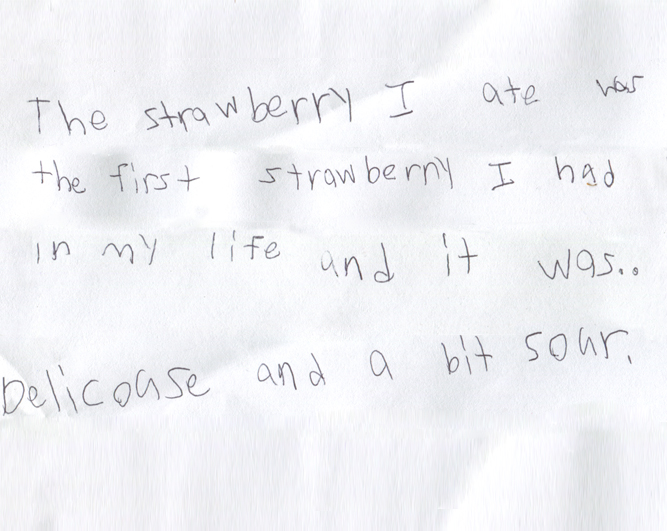 The strawberry I ate was
the first strawberry I had
in my life and it was..
Delicouse and a bit sour.